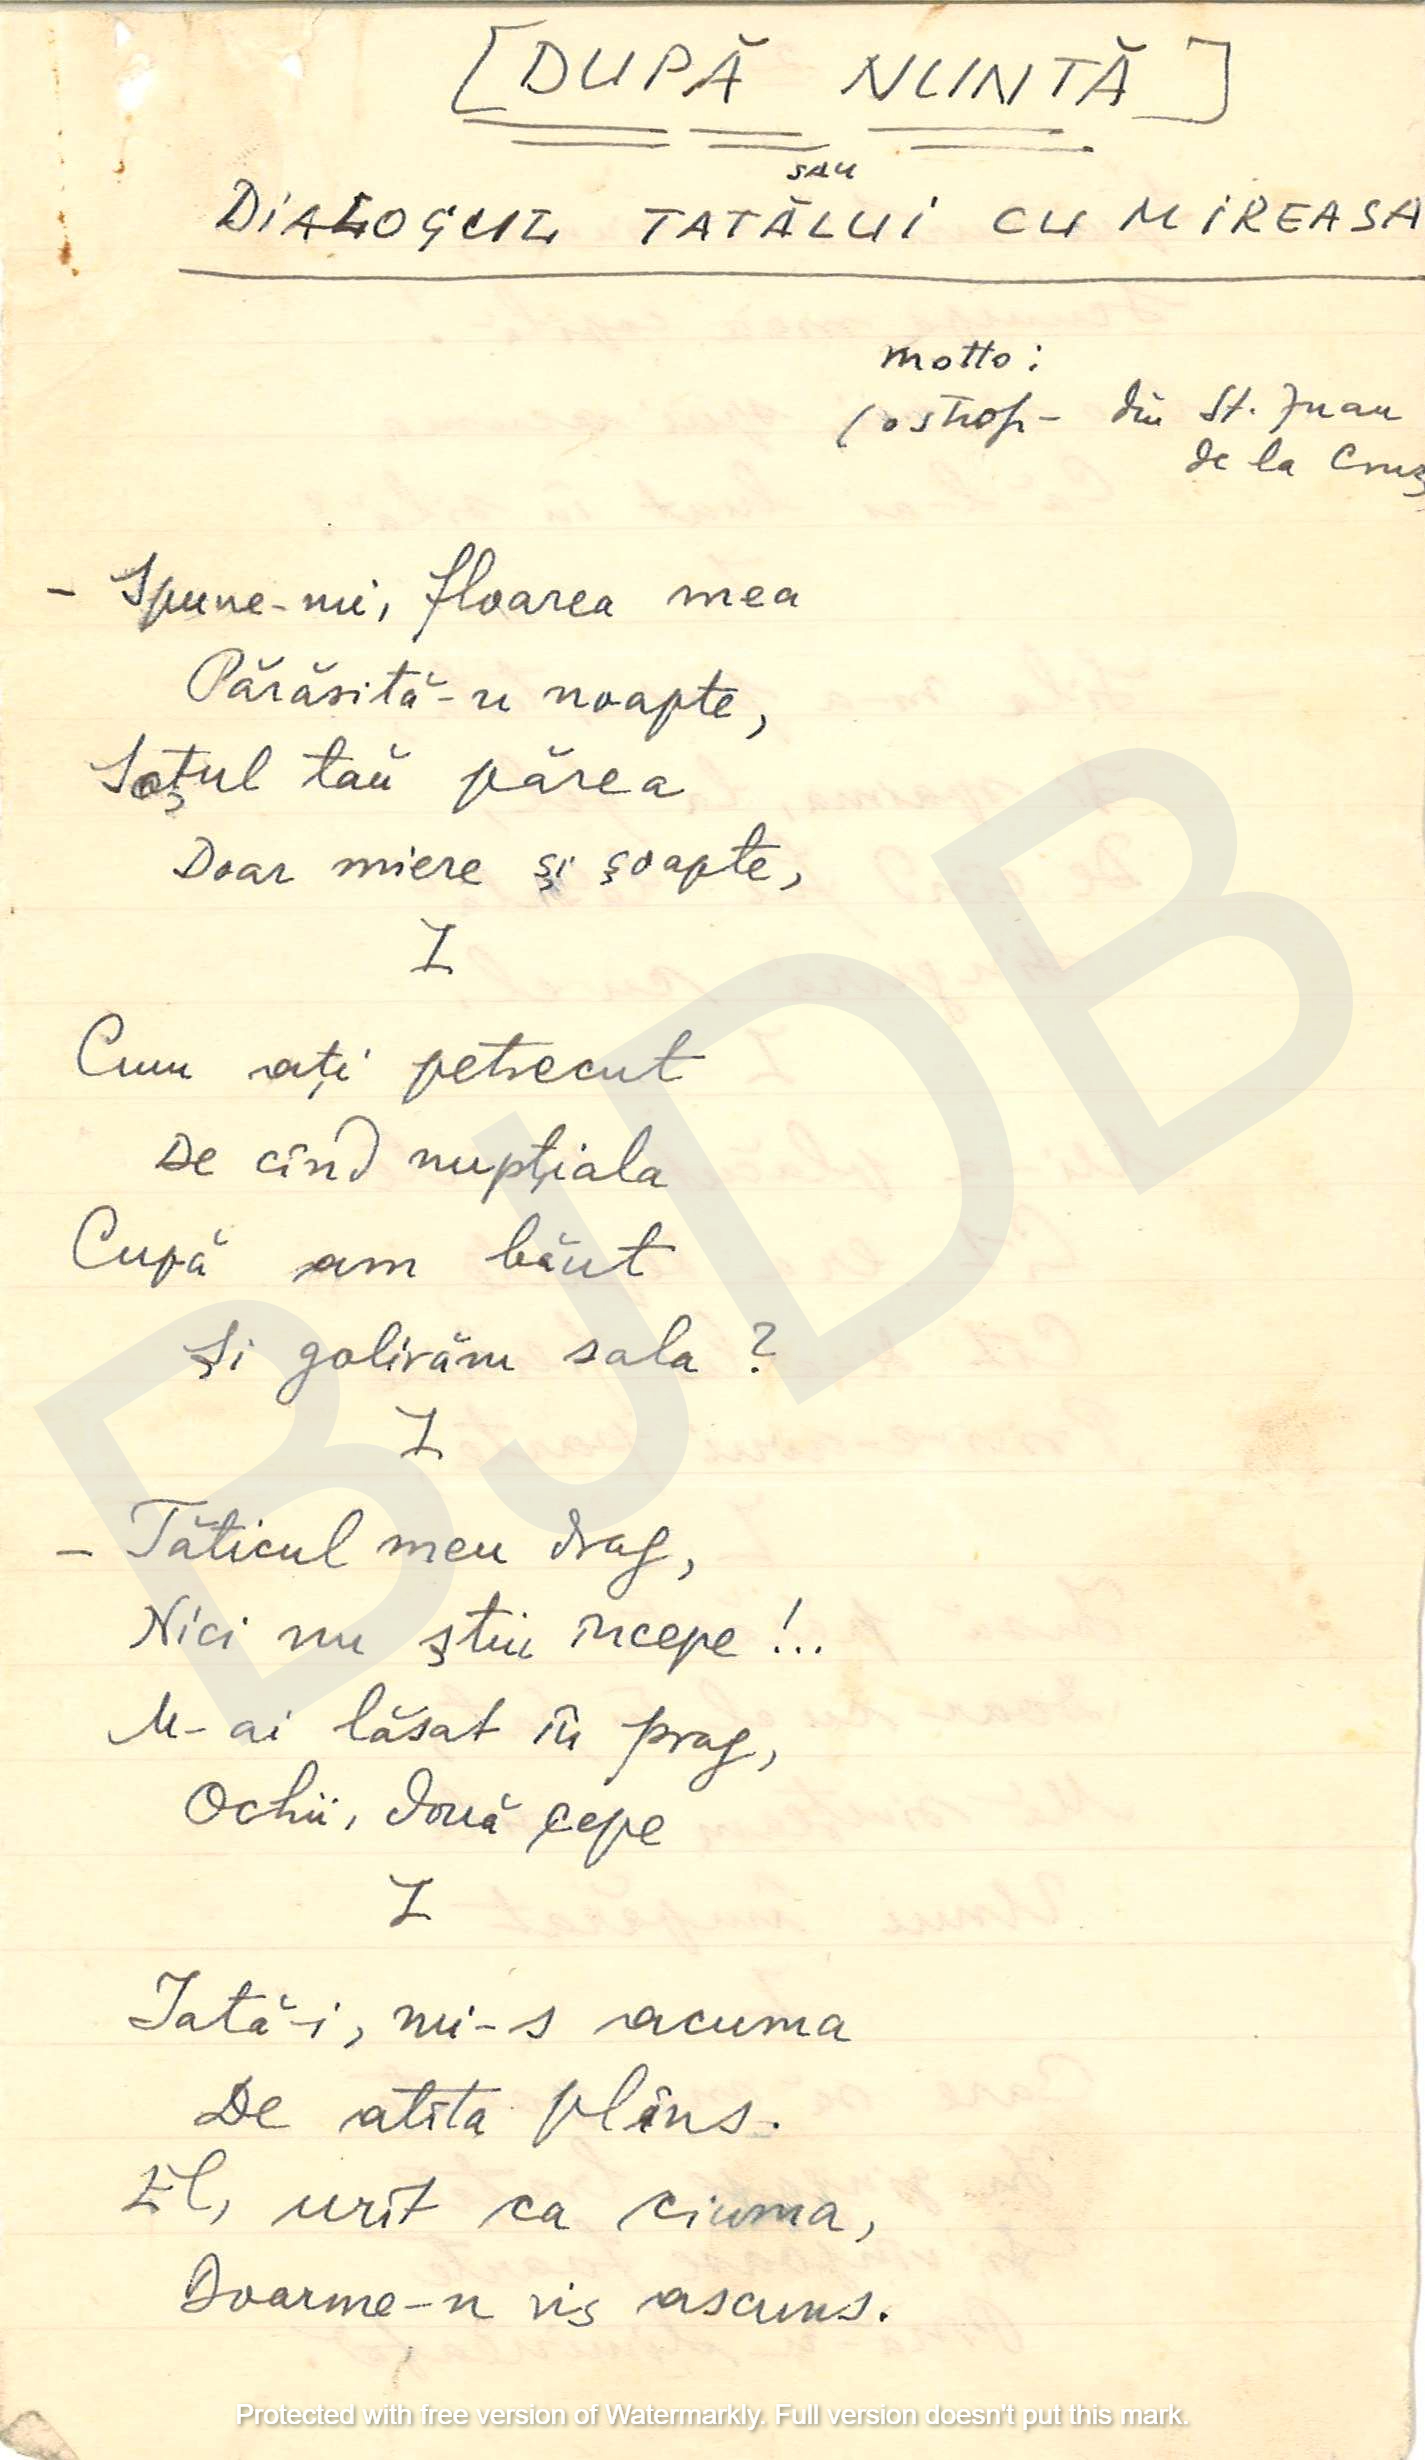 [DUPĂ NUNTĂ]
sau
DIALOGUL TATĂLUI CU MIREASA
motto:
(o strof- din St. Juan
de la Cruz
- Spune-mi, floarea mea
Părăsită-n noapte,
Soţul tău părea
Doar miere şi şoapte,
I
Cum aţi petrecut
De cînd nupţiala
Cupă am băut
Şi golirăm sala?
I
- Tăticul meu drag,
Nici nu ştiu începe!..
M-ai lăsat în prag,
Ochii, două cepe
I
Iată-i, mi-s acuma
De atîta plâns.
El, urît ca ciuma,
Doarme-n vis ascuns.
BJDB
Protected with free version of Watermarkly. Full version doesn't put this mark.